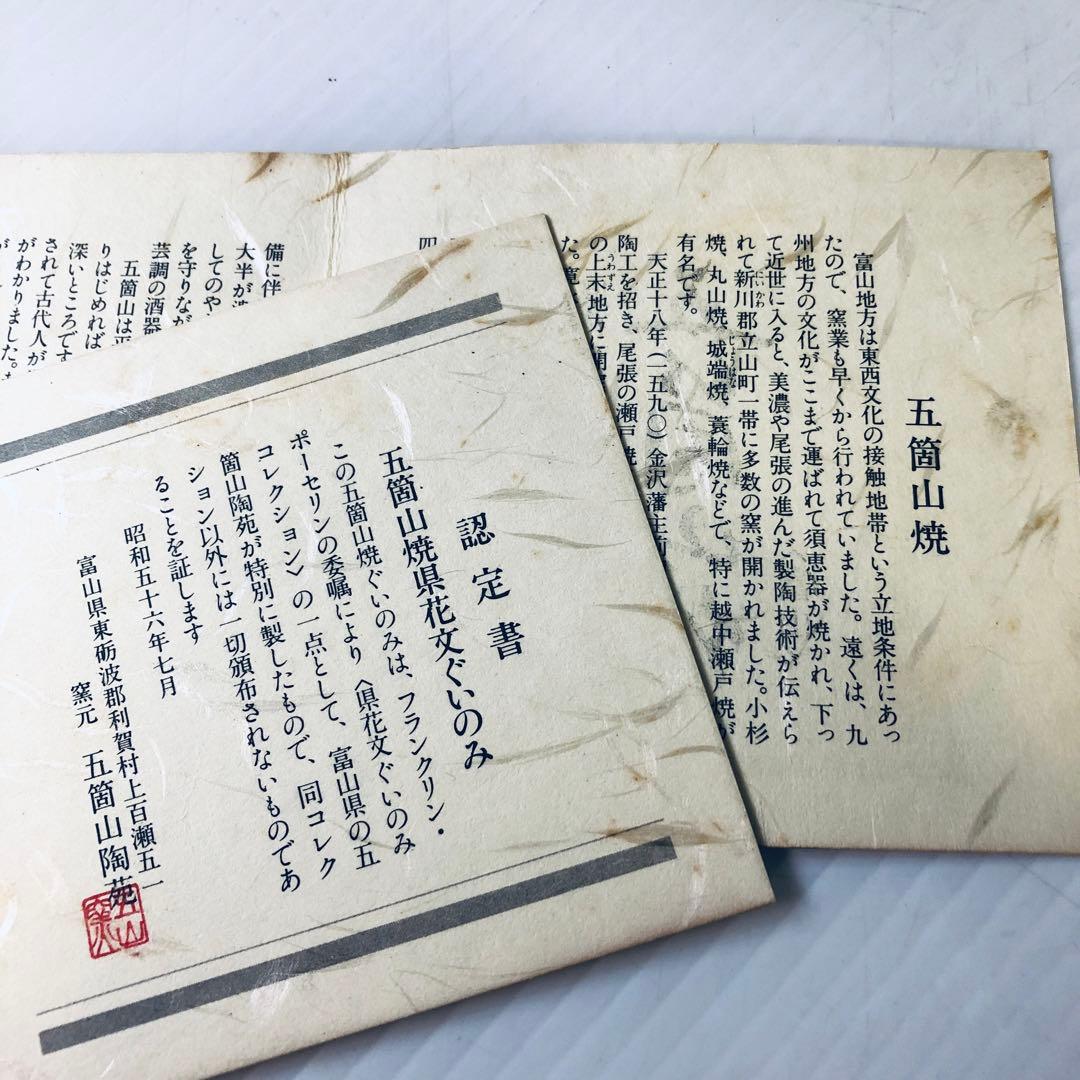 五箇山焼
富山地方は東西文化の接触地帯という立地条件にあっ
たので、窯業も早くから行われていました。遠くは、九
州地方の文化がここまで運ばれて須恵器が焼かれ、下っ
て近世に入ると、美濃や尾張の進んだ製陶技術が伝えら
れて新川郡立山町一帯に多数の窯が開かれました。小杉
焼、丸山焼、城端焼、蓑輪焼などで、特に越中瀬戸焼が
有名です。
天正十八年（一五九〇）金沢藩主前
陶工を招き、尾張の瀬戸焼
の上末地方に開
た。寛
四
備に伴
大半が
してのや
を守りなが
芸調の酒器
五箇山は平
りはじめれば
深いところです
されて古代人が
がわかりました。
認定書
五箇山焼県花文ぐいのみ
この五箇山焼ぐいのみは、フランクリン・
ポーセリンの委嘱により〈県花文ぐいのみ
コレクション〉の一点として、富山県の五
箇山陶苑が特別に製したもので、同コレク
ション以外には一切頒布されないものであ
ることを証します
昭和五十六年七月
富山県東砺波郡利賀村上百瀬五一
窯元 五箇山陶苑